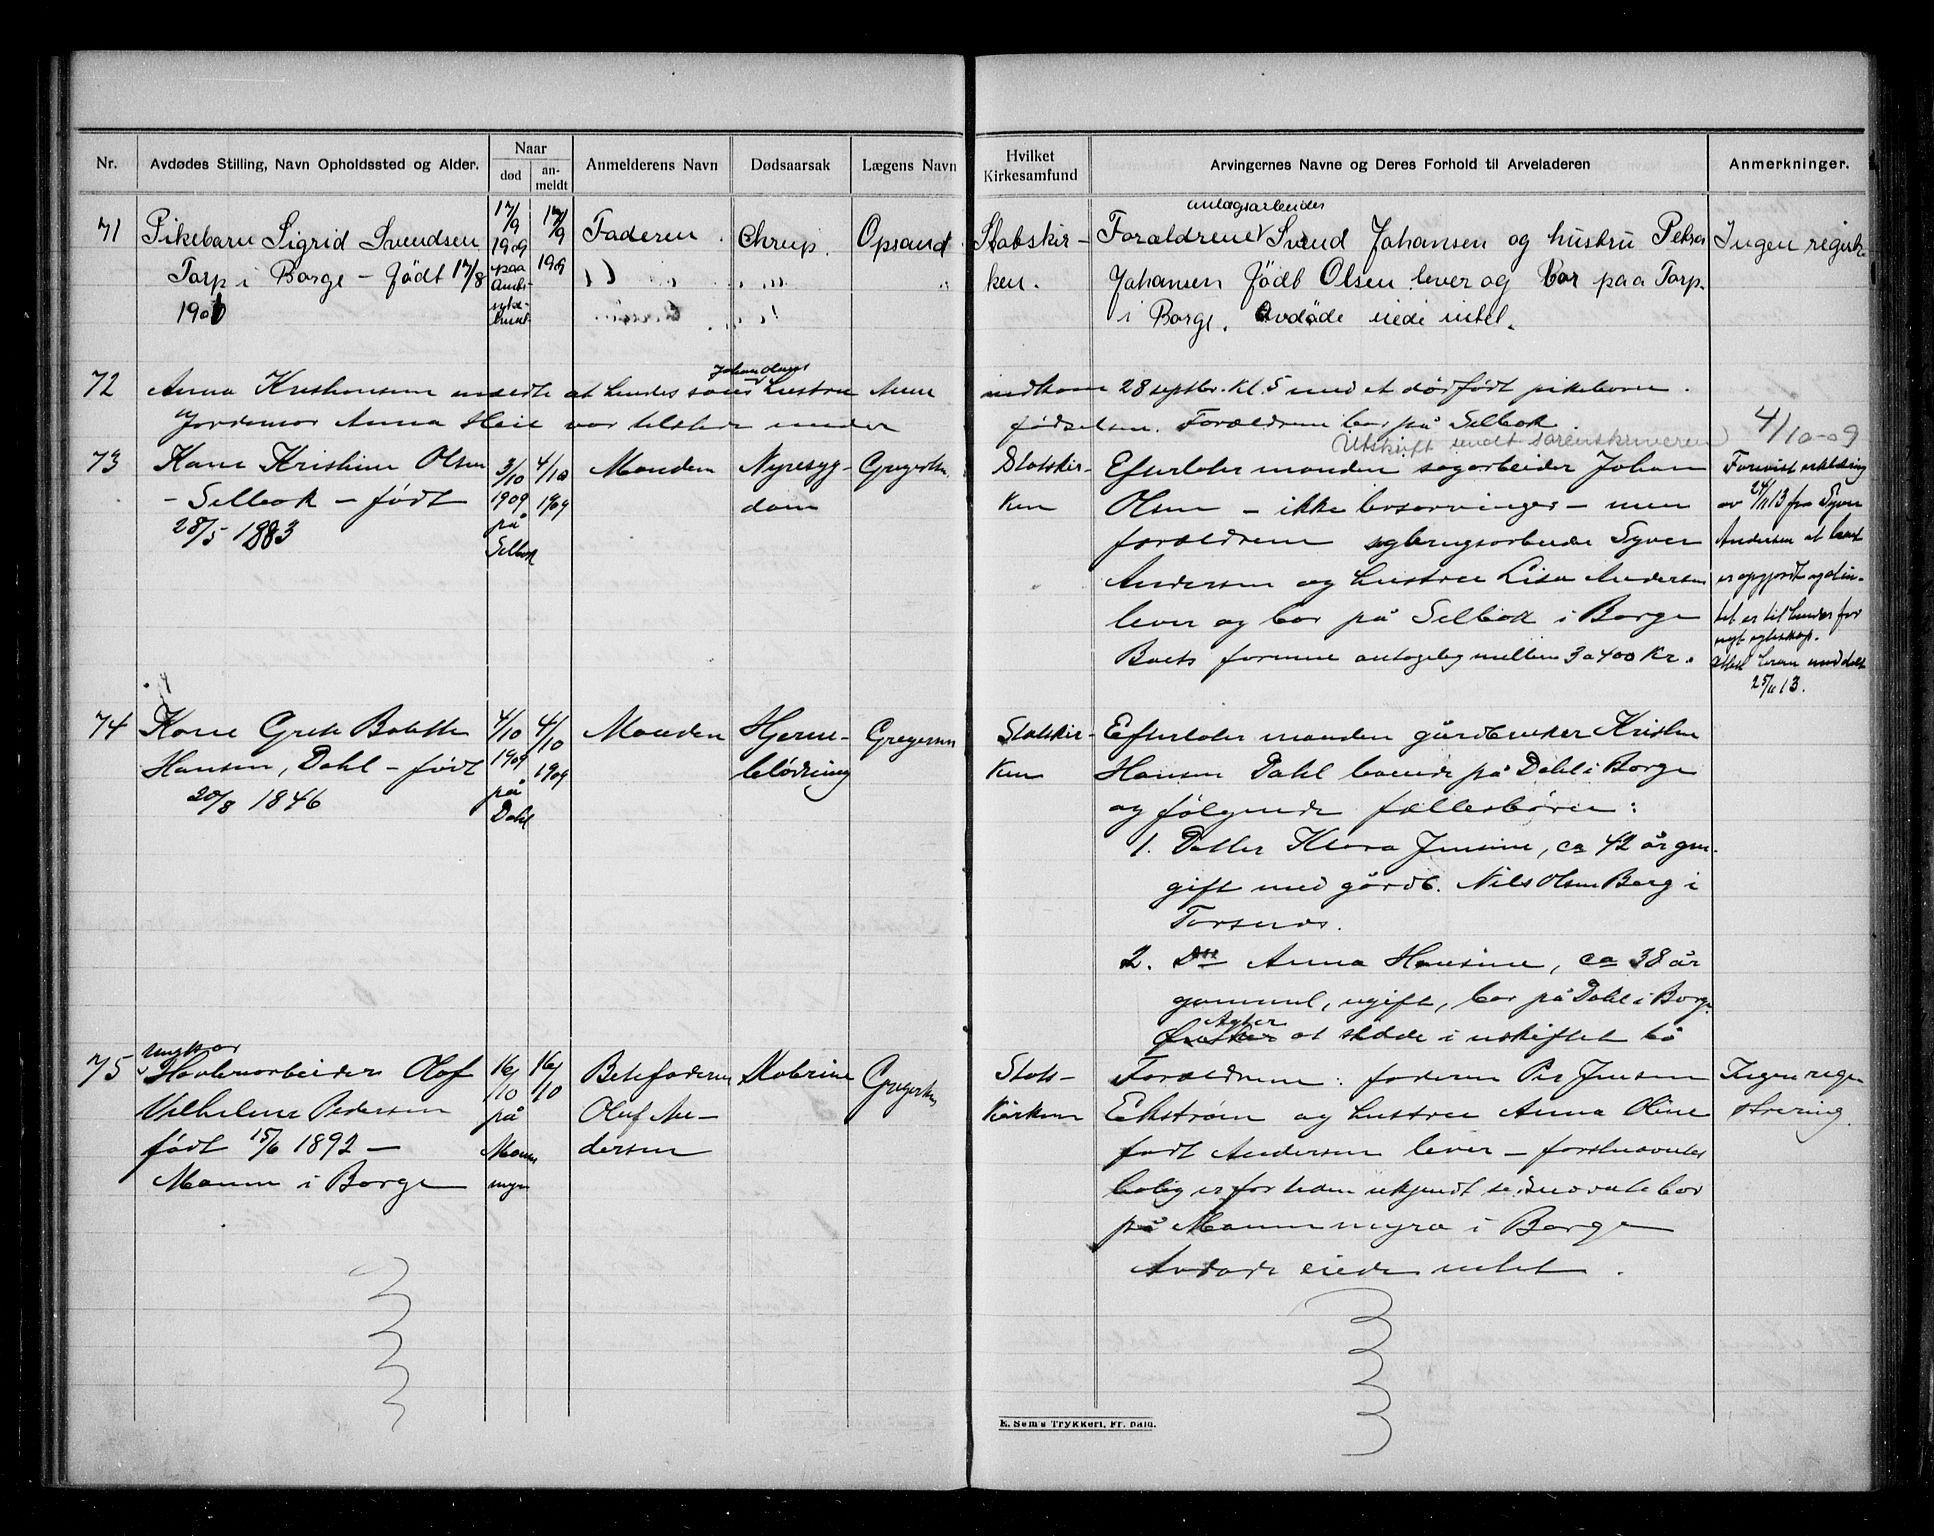 Nr.
Avdødes Stilling, Navn Opholdssted og Alder.
Naar
død
an-
meldt
Anmelderens Navn
Dødsaarsak
Lægens Navn
Hvilket
Kirkesamfund
Arvingernes Navne og Deres Forhold til Arveladeren
Anmerkninger.
71
Pikebarn Sigrid Svendsen
Torp i Borge - født 17/8
190
17/9
1909
paa
Amts-
syke-
huset
17/9
1909
Faderen
Chrup.
Opsand
Statskir-
ken.
anlægsarbeider
Forældrene Svend Johansen og hustru Petra
Johansen født Olsen lever og bor paa Torp
i Borge. Avdöde eiede intet.
Ingen registr
72
Anna Kristiansen meldte at hendes søns hustru Anne
Johan Olsens
Jordemor Anna Heie var tilstede under
nedkom 28 septbr. kl. 5 med et dødfødt pikebarn.
fødselen. Forældrene bor på Selbak
Utskrift sendt sorenskriveren
4/10-09
73
Kone Kristine Olsen
- Selbak - født
28/5 1883
3/10
1909
på
Selbak
4/10
1909
Manden
Nyresyg-
dom
Gregersen
Statskir-
ken
Efterlater manden sagarbeider Johan
Olsen - ikke livsarvinger - men
forældrene sagbrugsarbeider Syver
Andersen og hustru Lisa Andersen
lever og bor på Selbak i Borge
Boets formue antagelig mellem 3 a 400 Kr.
Forevist erklæring
av 24/11 13 fra Syver
Andersen at boet
er opgjort og at in-
tet er til hinder for
nyt egteskap.
25/11 13.
74
Kone Grete Bolette
Hansen, Dahl - født
20/8 1846
4/10
1909
på
Dahl
4/10
1909
Manden
Hjerne-
blødning
Gregersen
Statskir-
ken
Efterlater manden gårdbruker Kristen
Hansen Dahl boende på Dahl i Borge
og følgende fællesbörn:
1. Datter Klara Jensine, ca 42 år gm.
gift med gårdb. Nils Olsen Borg i
Torsnes.
2. Do Anna Hansine, ca 38 år
gammel, ugift, bor på Dahl i Borge
Agter
at sidde i uskiftet bo
75
Ungkar
Høvleriarbeider Olaf
Vilhelm Pedersen
født 15/6 1892 -
Moum i Borge
16/10
på
Moum
myr
16/10
Bestefaderen
Oluf An-
dersen
Gregersen
Stats-
kirken
Forældrene: faderen Per Jensen
Ekstrøm og hustru Anna Oline
født Andersen lever - førstnævntes
bolig er for tiden ukjendt sidstnævnte bor
på Moum myra i Borge
Avdøde eiede intet.
Ingen regi-
strering.
E. Sem's Trykkeri, Fr. hald.